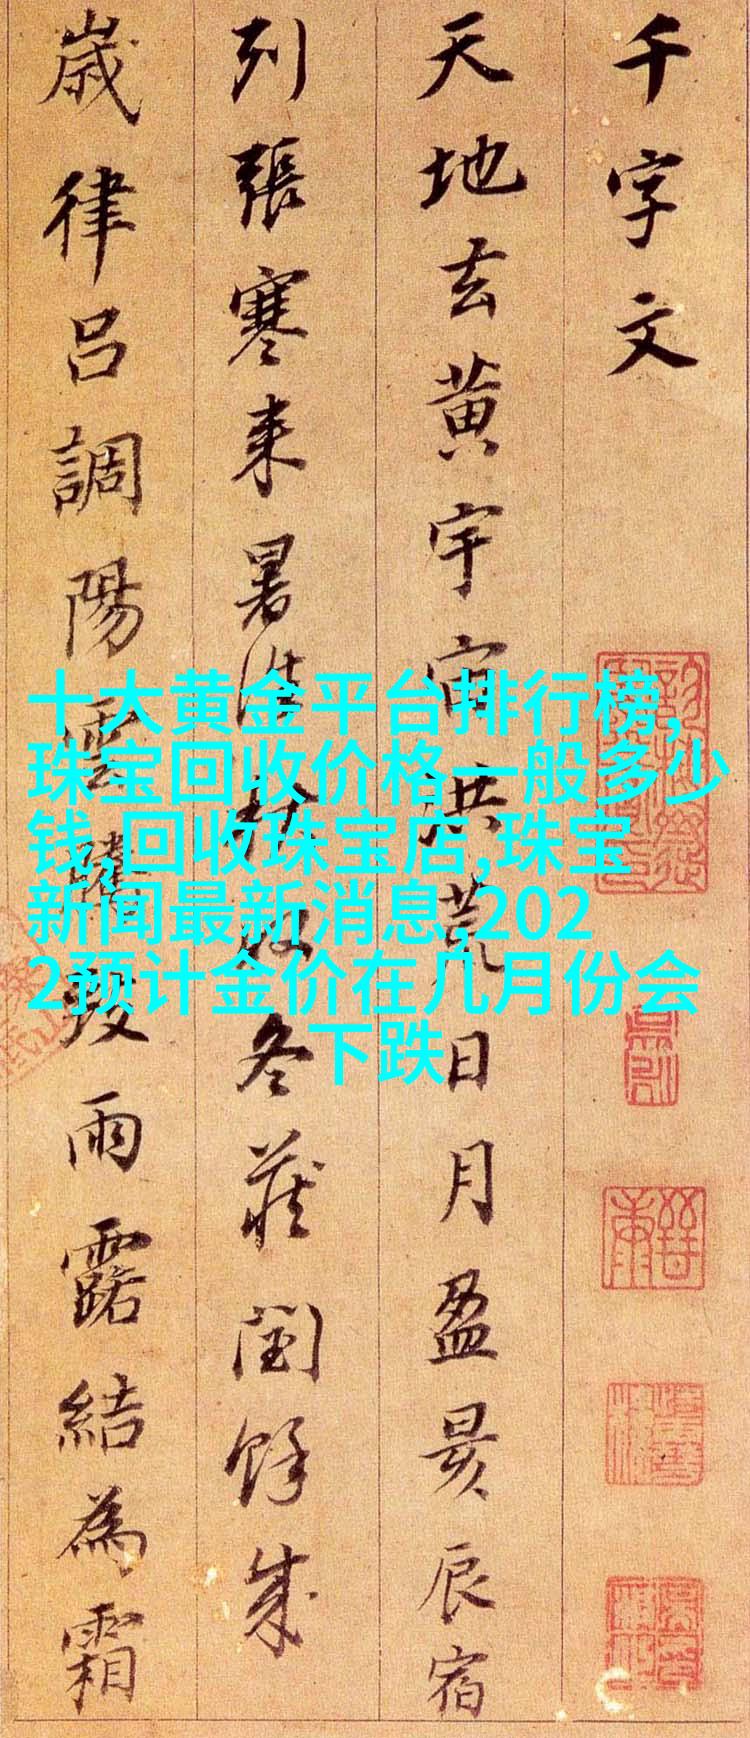 千字文
天地玄黄宇宙洪荒日月盈昃辰宿
列張寒来暑往秋收冬蔵閏餘成
歳律吕調陽雲騰致雨露結為霜
十大黄金平台排行榜,
珠宝回收价格一般多少
钱,回收珠宝店,珠宝
新闻最新消息,202
2预计金价在几月份会
下跌